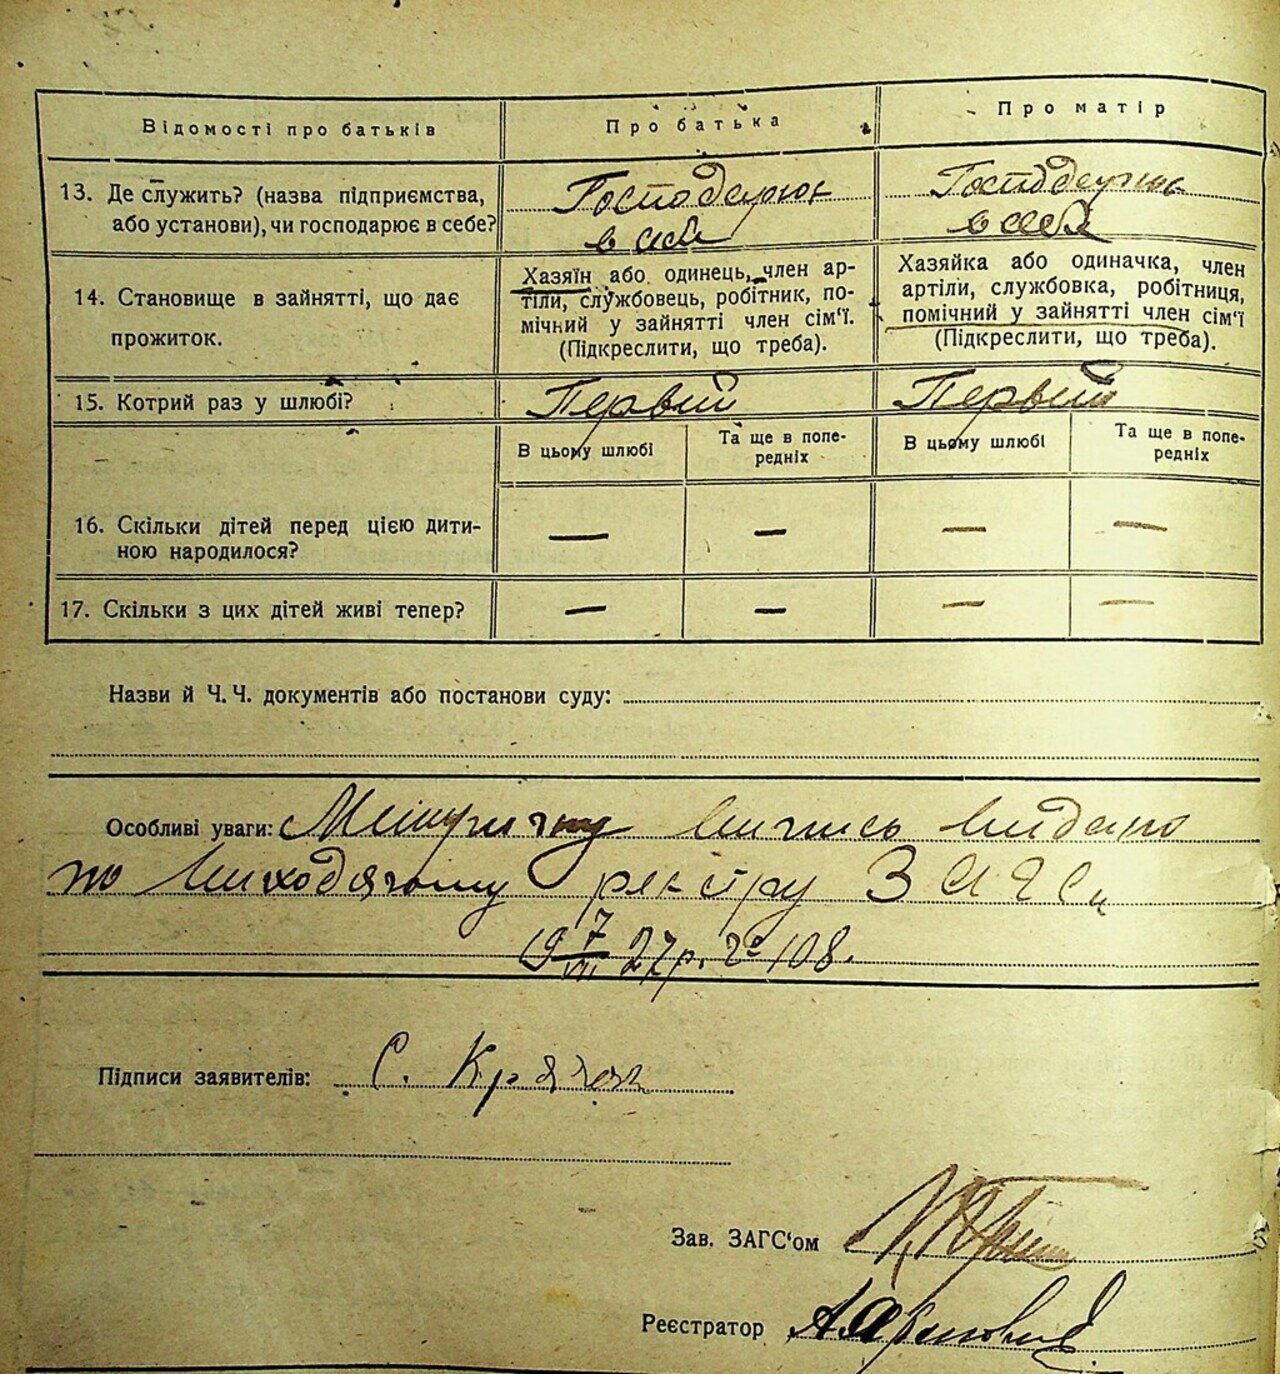 Відомості про батьків
Про батька
Про матір
13. Де служить? (назва підприємства,
або установи), чи господарює в себе?
Господарює
в себе
Господарює
в себе
14. Становище в зайнятті, що дає
прожиток.
Хазяїн або одинець, член ар-
тіли, службовець, робітник, по-
мічний у зайнятті член сім'ї.
(Підкреслити, що треба).
Хазяйка або одиначка, член
артіли, службовка, робітниця,
помічний у зайнятті член сім'ї
(Підкреслити, що треба).
15. Котрий раз у шлюбі?
Первий
Первий
В цьому шлюбі
Та ще в попе-
редніх
В цьому шлюбі
Та ще в попе-
редніх
16. Скільки дітей перед цією дити-
ною народилося?
— — — —
17. Скільки з цих дітей живі тепер?
— — — —
Назви й Ч. Ч. документів або постанови суду:
Особливі уваги: Метричну випись видано
по виходячому реєстру ЗАГСу
19 7/VII 27 р. № 108.
Підписи заявителів: С.
Зав. ЗАГС'ом
Реєстратор